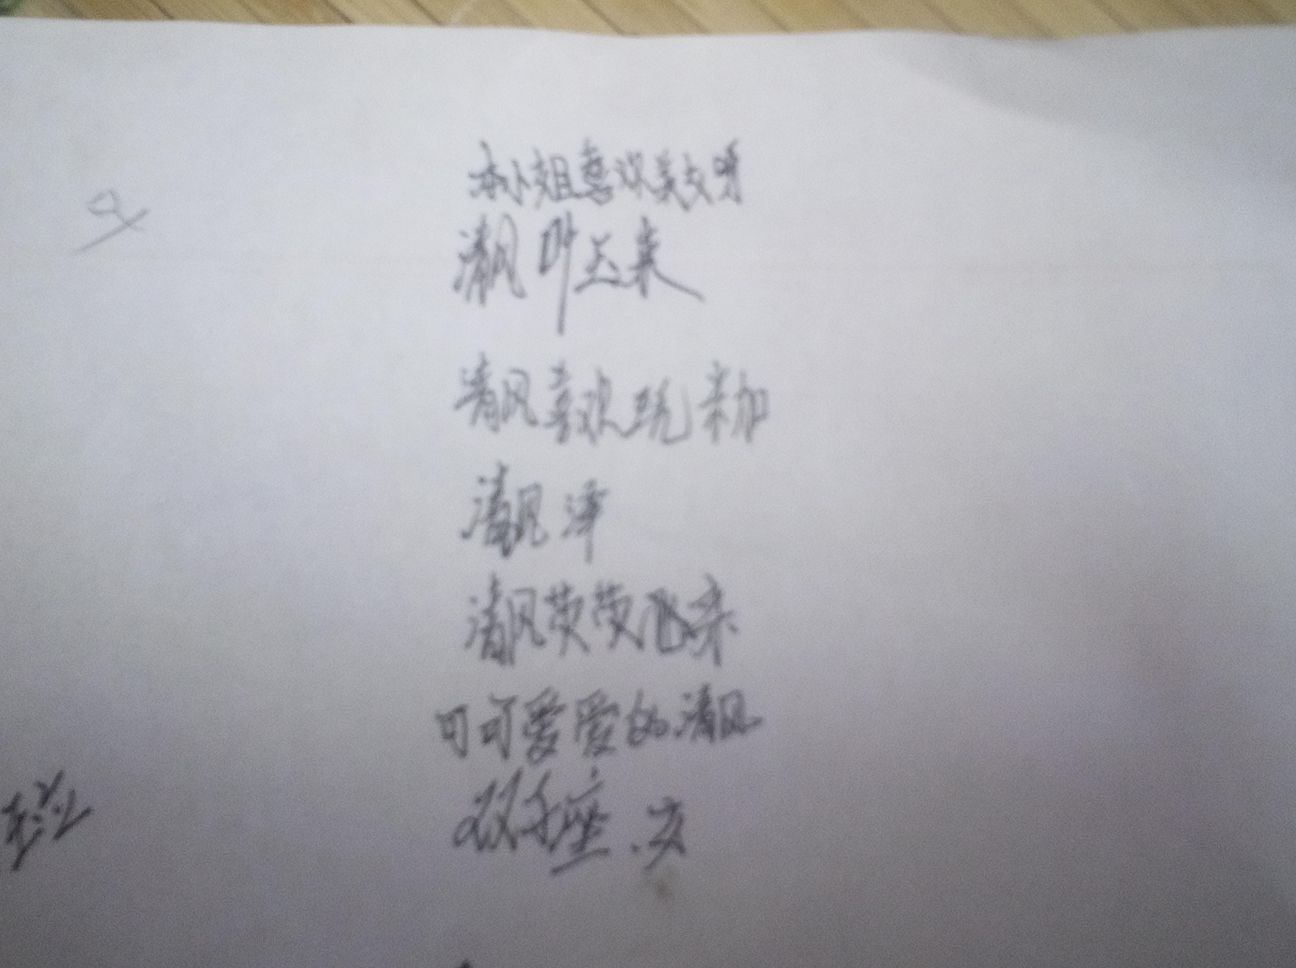 本小姐喜欢美女呀
清风叶云来
清风喜欢玩亲加
清风泽
清风荧荧飞来
可可爱爱的清风
双子座.